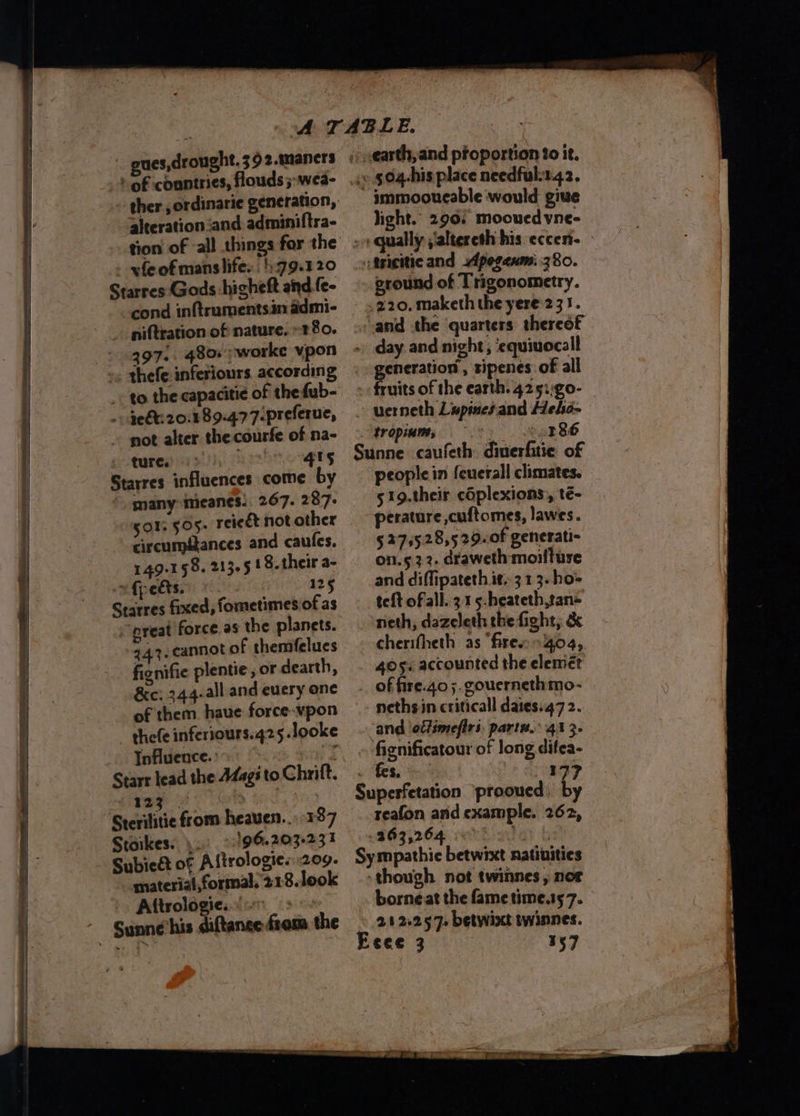 A TABLE.
gues,drought.392.maners
of countries, flouds ; wea-
ther , ordinarie generation,
alteration and adminiſtra-
tion of all things for the
vſe of mans life. 79.120
Starres Gods higheſt and ſe-
cond inſtruments in admi-
niſtration of nature. 180.
397. 480. worke vpon
theſe inferiours according
to the capacitie of the ſub-
iect. 20.189.477. preſerue,
not alter the courſe of na-
ture. 415
Starres influences come by
many meanes. 267. 287.
501. 505. reiect not other
circumſtances and cauſes.
149.158. 213. 518. their a-
ſpects. 125
Starres fixed, ſometimes of as
great force as the planets.
343. cannot of themſelues
ſignifie plentie , or dearth,
&c. 344. all and euery one
of them haue force vpon
theſe inferiours.425. looke
Influence.
Starr lead the Magi to Chriſt.
123
Sterilitie from heauen. 187
Stoikes. 96.203.231
Subiect of Aſtrologie. 209.
material, formal. 218. look
Aſtrologie.
Sunne his diſtance from the
earth, and proportion to it.
504. his place needful. 142.
immooueable would giue
light. 290. mooued vne-
qually , altereth his eccen-
tricitie and Apogeum. 380.
ground of Trigonometry.
220. maketh the yere 231.
and the quarters thereof
day and night , equiuocall
generation , ripenes of all
fruits of the earth. 425. go-
uerneth Lupines and Helio-
tropium, 186
Sunne cauſeth diuerſitie of
people in ſeuerall climates.
519. their cōplexions , tē-
perature , cuſtomes, lawes.
527.528,529. of generati-
on.533. draweth moiſture
and diſſipateth it. 313. ho-
teſt of all. 315. heateth, tan-
neth, dazeleth the ſight, &
cheriſheth as fire. 404,
405. accounted the elemēt
of fire.405. gouerneth mo-
neths in criticall daies. 472.
and octimeſtri partu. 413.
ſignificatour of long diſea-
ſes. 177
Superfetation prooued by
reaſon and example. 262,
263,264
Sympathie betwixt natiuities
though not twinnes , nor
borne at the ſame time. 157.
212.257. betwixt twinnes.
Eeee 3 157